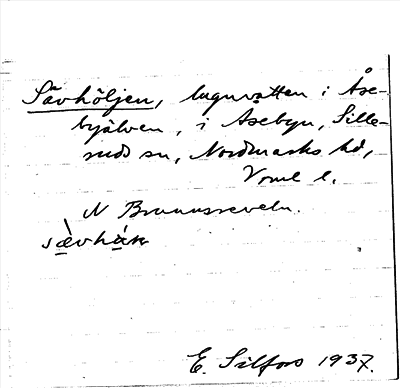 Sävhöljen, lugnvatten i Åse-
byälven, i Åsebyn, Sille-
rud sn, Nordmarks hd,
Vrml l.
N Brunnsreveln.
sävhàn
E. Silfors 1937.